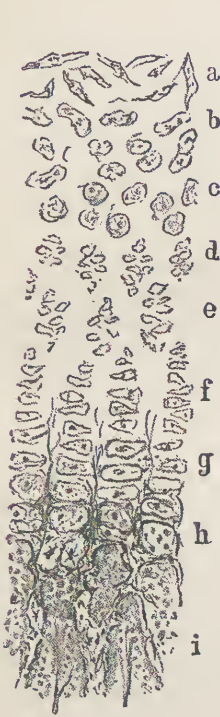 a
b
c
d
e
f
g
h
i